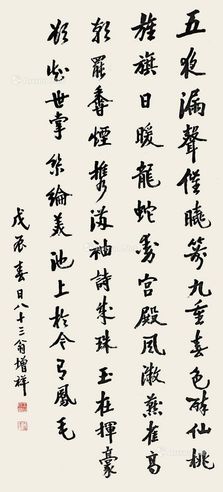 五夜漏聲催曉箭九重春色醉仙桃
旌旗日暖龍蛇動宮殿風微燕雀高
朝罷香煙攜滿袖詩成珠玉在揮豪
欲知世掌絲綸美池上於今有鳳毛
戊辰春日八十三翁增祥